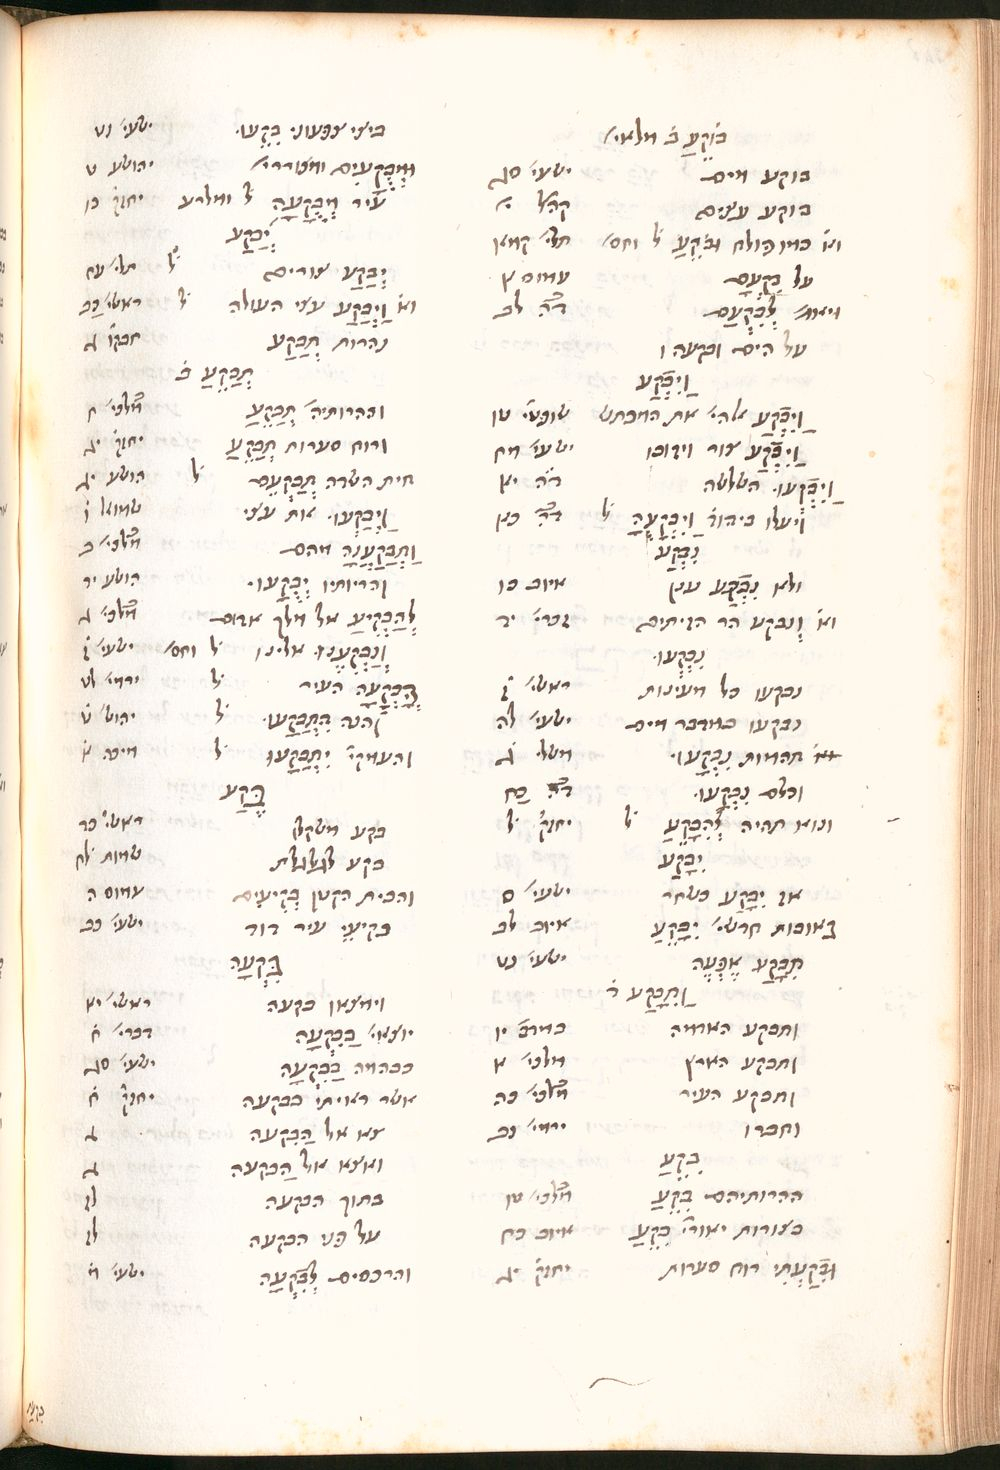 בּוֹקֵעַ ב֗ מלאי׳
בוקע מים ישעי׳ סג
בוקע עצים קהל׳ י׳
וא֗ כמו פולח וּבֹקֵעַ ל֗ וחס׳ תלי׳ קמא
על בִּקְעָם עמוס א
ויאות׳ לְבִקְעָם ד״ה לב
על הים ובקעהו
וַיִּבְקַע
וַיִּבְקַע אלהי׳ את המכתש שופטי׳ טו
וַיִּבְקַע צור ויזובו ישעי׳ מח
וַיִּבְקְעוּ השלשה ד״ה יא
ויעלו ביהוד׳ וַיִּבְקָעוּהָ ל֗ ד״ה כא
נִבְקַע
ולא נִבְקַע ענן איוב כו
וא֗ וְנבקע הר הזיתים זכרי׳ יד
נִבְקְעוּ
נבקעו כל מעינות ראשי׳ ז֗
נבקעו במדבר מים ישעי׳ לה
תהומות נִבְקָעוּ משלי ג֗
וכלם נִבְקָעוּ ד״ה כה
ונוא תהיה לְהִבָּקֵעַ ל֗ יחזק׳ ל֗
יִבָּקַע
אז יִבָּקַע כשחר ישעי׳ ס
כאובות חדשי׳ יִבָּקֵעַ איוב לב
תִּבָּקַע אֶפְעֶה ישעי׳ נט
וַתִּבָּקַע ד֗
ותבקע האדמה במדב׳ יו
ותבקע הארץ מלכי׳ א
ותבקע העיר מלכי׳ כה
וחברו ירמי׳ נב
בִּקֵּעַ
ההרותיהם בִּקֵּעַ מלכי׳ טו
בצורות יאורי׳ בִּקֵּעַ איוב כח
וּבִקַּעְתִּי רוח סערות יחזק׳ יג
ביצי צפעוני בִּקֵּעוּ ישעי׳ נט
וּמְבֻקָּעִים ומצוררי׳ יהושע ט
עיר מְבֻקָּעָה ל֗ ומלרע יחזק׳ כו
יְבַקַּע
יְבַקַּע צורים ל֗ תלי׳ עח
וא֗ וַיְבַקַּע עצי העולה ל֗ ראשי׳ כב
נהרות תְּבַקַּע חבקו׳ ג
תְּבַקֵּעַ ב֗
והרותיה׳ תְּבַקֵּעַ מלכי׳ ח
ורוח סערות תְּבַקֵּעַ יחזק׳ יג
חית השדה תְּבַקְּעֵם ל֗ הושע יג
וַיְבַקְּעוּ את עצי שמואל ו֗
וַתְּבַקַּעְנָה מהם מלכי׳ ב
והריותיו יְבֻקָּעוּ הושע יד
לְהַבְקִיעַ אל מלך אדום מלכי׳ ג
וְנַבְקִעֶנָּה אלינו ל֗ וחס׳ ישעי׳ ז֗
הָבְקְעָה העיר ל֗ ירמי׳ לט
והנה הִתְבַּקָּעוּ ל֗ יהוש׳ ט֗
והעמקי׳ יִתְבַּקָּעוּ ל֗ מיכה א֗
בֶּקַע
בקע משקלו ראשי׳ כד
בקע לגלגלת שמות לח
והבית הקטן בְּקִיעִים עמוס ה
בקיעֵי עיר דוד ישעי׳ כב
בִּקְעָה
וימצאו בקעה ראשי׳ יא
יוצאי׳ בַּבִּקְעָה דברי׳ ח֗
כבהמה בַּבִּקְעָה ישעי׳ סג
אשר ראיתי בבקעה יחזק׳ ח֗
צא אל הַבִּקעה ג
ואצא אל הַבקעה ג
בתוך הבקעה לז
על פני הבקעה לז
והרכסים לְבִקְעָה ישעי׳ מ֗
בִּקְעַת